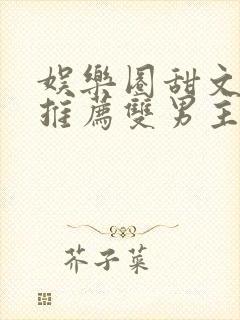 娛樂圈甜文
推薦雙男主
芥子菜